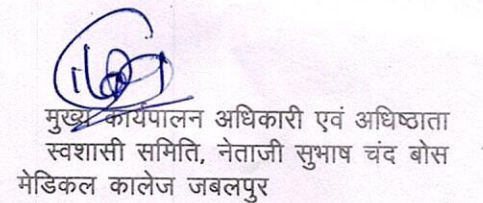 मुख्य कार्यपालन अधिकारी एवं अधिष्ठाता
स्वशासी समिति, नेताजी सुभाष चंद बोस
मेडिकल कालेज जबलपुर